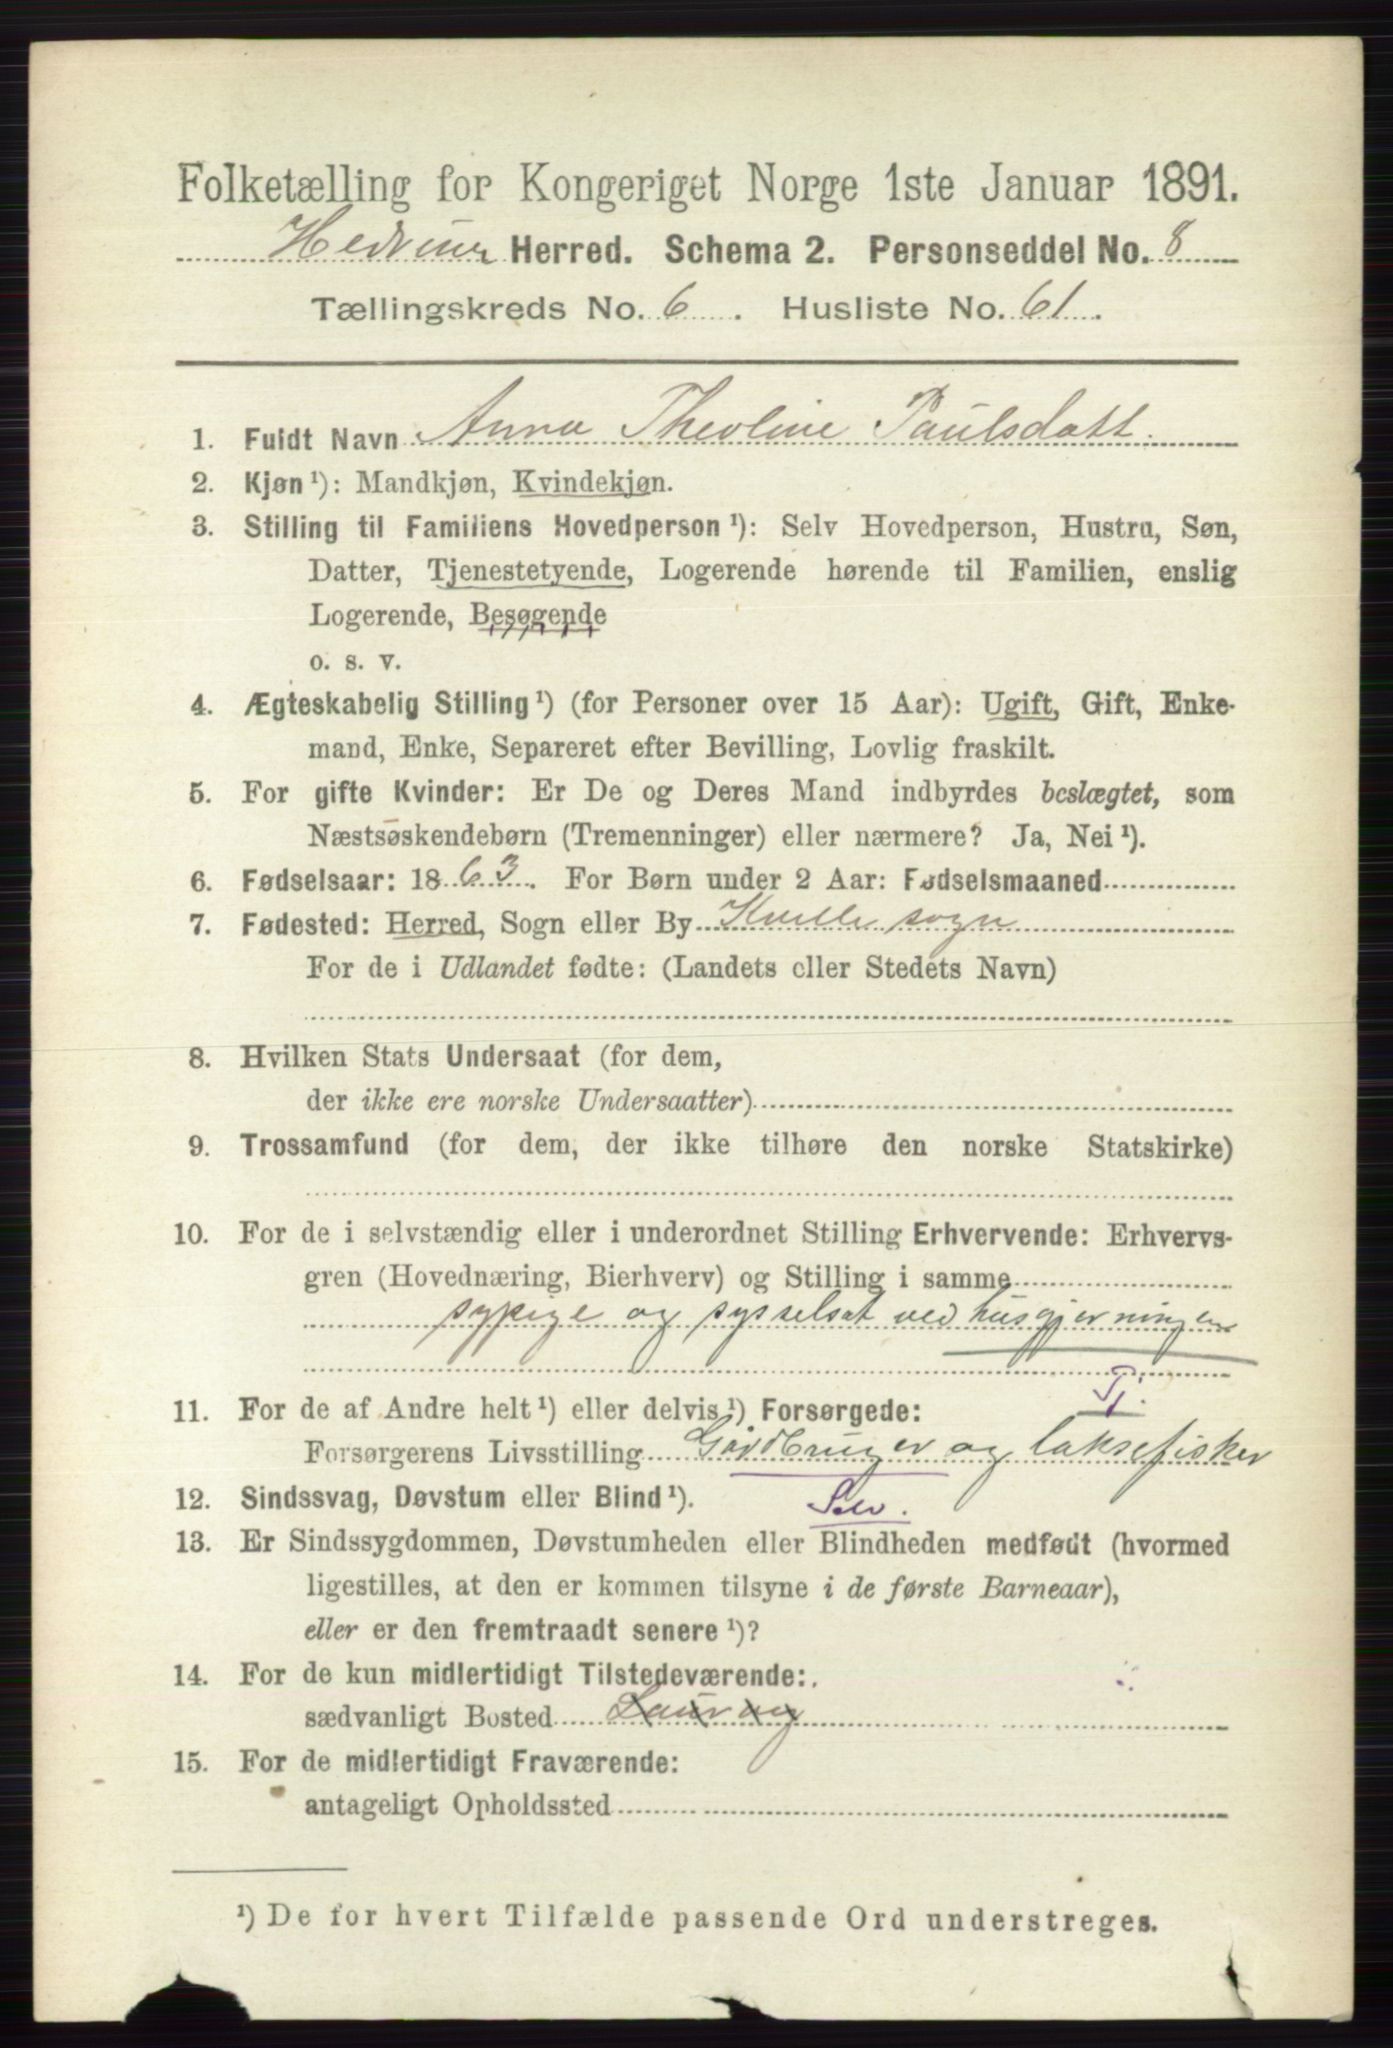 Folketælling for Kongeriget Norge 1ste Januar 1891.
Hedrum Herred. Schema 2. Personseddel No. 8
Tællingskreds No. 6. Husliste No. 61.
1. Fuldt Navn Anna Theoline Paulsdatt.
2. Kjøn ¹): Mandkjøn, Kvindekjøn.
3. Stilling til Familiens Hovedperson ¹): Selv Hovedperson, Hustru, Søn,
Datter, Tjenestetyende, Logerende hørende til Familien, enslig
Logerende, Besøgende
o. s. v.
4. Ægteskabelig Stilling ¹) (for Personer over 15 Aar): Ugift, Gift, Enke-
mand, Enke, Separeret efter Bevilling, Lovlig fraskilt.
5. For gifte Kvinder: Er De og Deres Mand indbyrdes beslægtet, som
Næstsøskendebørn (Tremenninger) eller nærmere? Ja, Nei ¹).
6. Fødselsaar: 1863. For Børn under 2 Aar: Fødselsmaaned
7. Fødested: Herred, Sogn eller By Kvelle sogn
For de i Udlandet fødte: (Landets eller Stedets Navn)
8. Hvilken Stats Undersaat (for dem,
der ikke ere norske Undersaatter)
9. Trossamfund (for dem, der ikke tilhøre den norske Statskirke)
10. For de i selvstændig eller i underordnet Stilling Erhvervende: Erhvervs-
gren (Hovednæring, Bierhverv) og Stilling i samme
sypige og sysselsat ved husgjerningen
Tj.
11. For de af Andre helt ¹) eller delvis ¹) Forsørgede:
Forsørgerens Livsstilling Gårdbruger og laksefisker
12. Sindssvag, Døvstum eller Blind ¹). Selv.
13. Er Sindssygdommen, Døvstumheden eller Blindheden medfødt (hvormed
ligestilles, at den er kommen tilsyne i de første Barneaar),
eller er den fremtraadt senere ¹)?
14. For de kun midlertidigt Tilstedeværende:
sædvanligt Bosted Laurvig
15. For de midlertidigt Fraværende:
antageligt Opholdssted
¹) De for hvert Tilfælde passende Ord understreges.